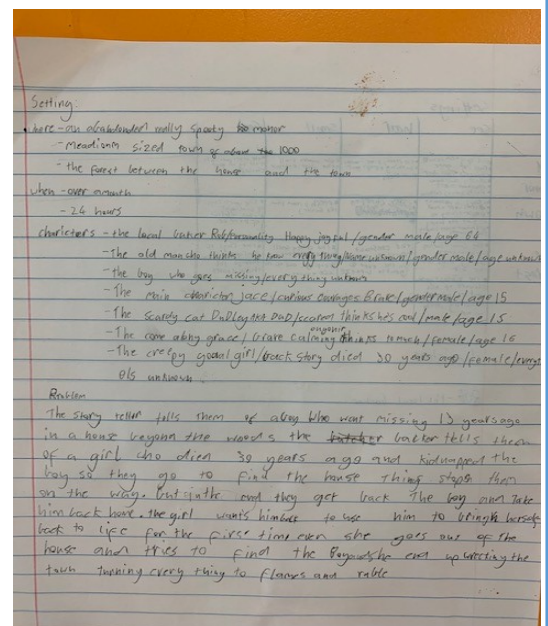 Setting:
where - an abandonded really spooky manor
- meadiam sized town of above 1000
- the forest between the house and the town
when - over a month
- 24 hours
charicters - the local Rob/Personality Happy joyful/gender male/age 64
- The old man cho thinks he know every thing/name unknown/gender male/age unknown
- the boy who goes missing/every thing unknown
- The main charictor jace/curious courages Brave/gender male/age 15
- The scardy cat DuDley AKA DuD/scared thinks hes cool/male/age 15
- The come along grace/brave calming thinks to much/female/age 16
- The creepy girl/back story died 30 years ago/female/every
els unknown.
Problem
The story teller tells them of a boy Who went missing 13 years ago
in a house beyond the woods the tells them
of a girl cho died 30 years ago and kidnapped the
boy so they go to find the house thing stops them
on the way. but in the end they get back The boy and Take
him back home. the girl wants him to use him to bring herself
back to life for the first time even she goes out of The
house and tries to find the she end up wrecting the
town turning every thing to flames and ruble